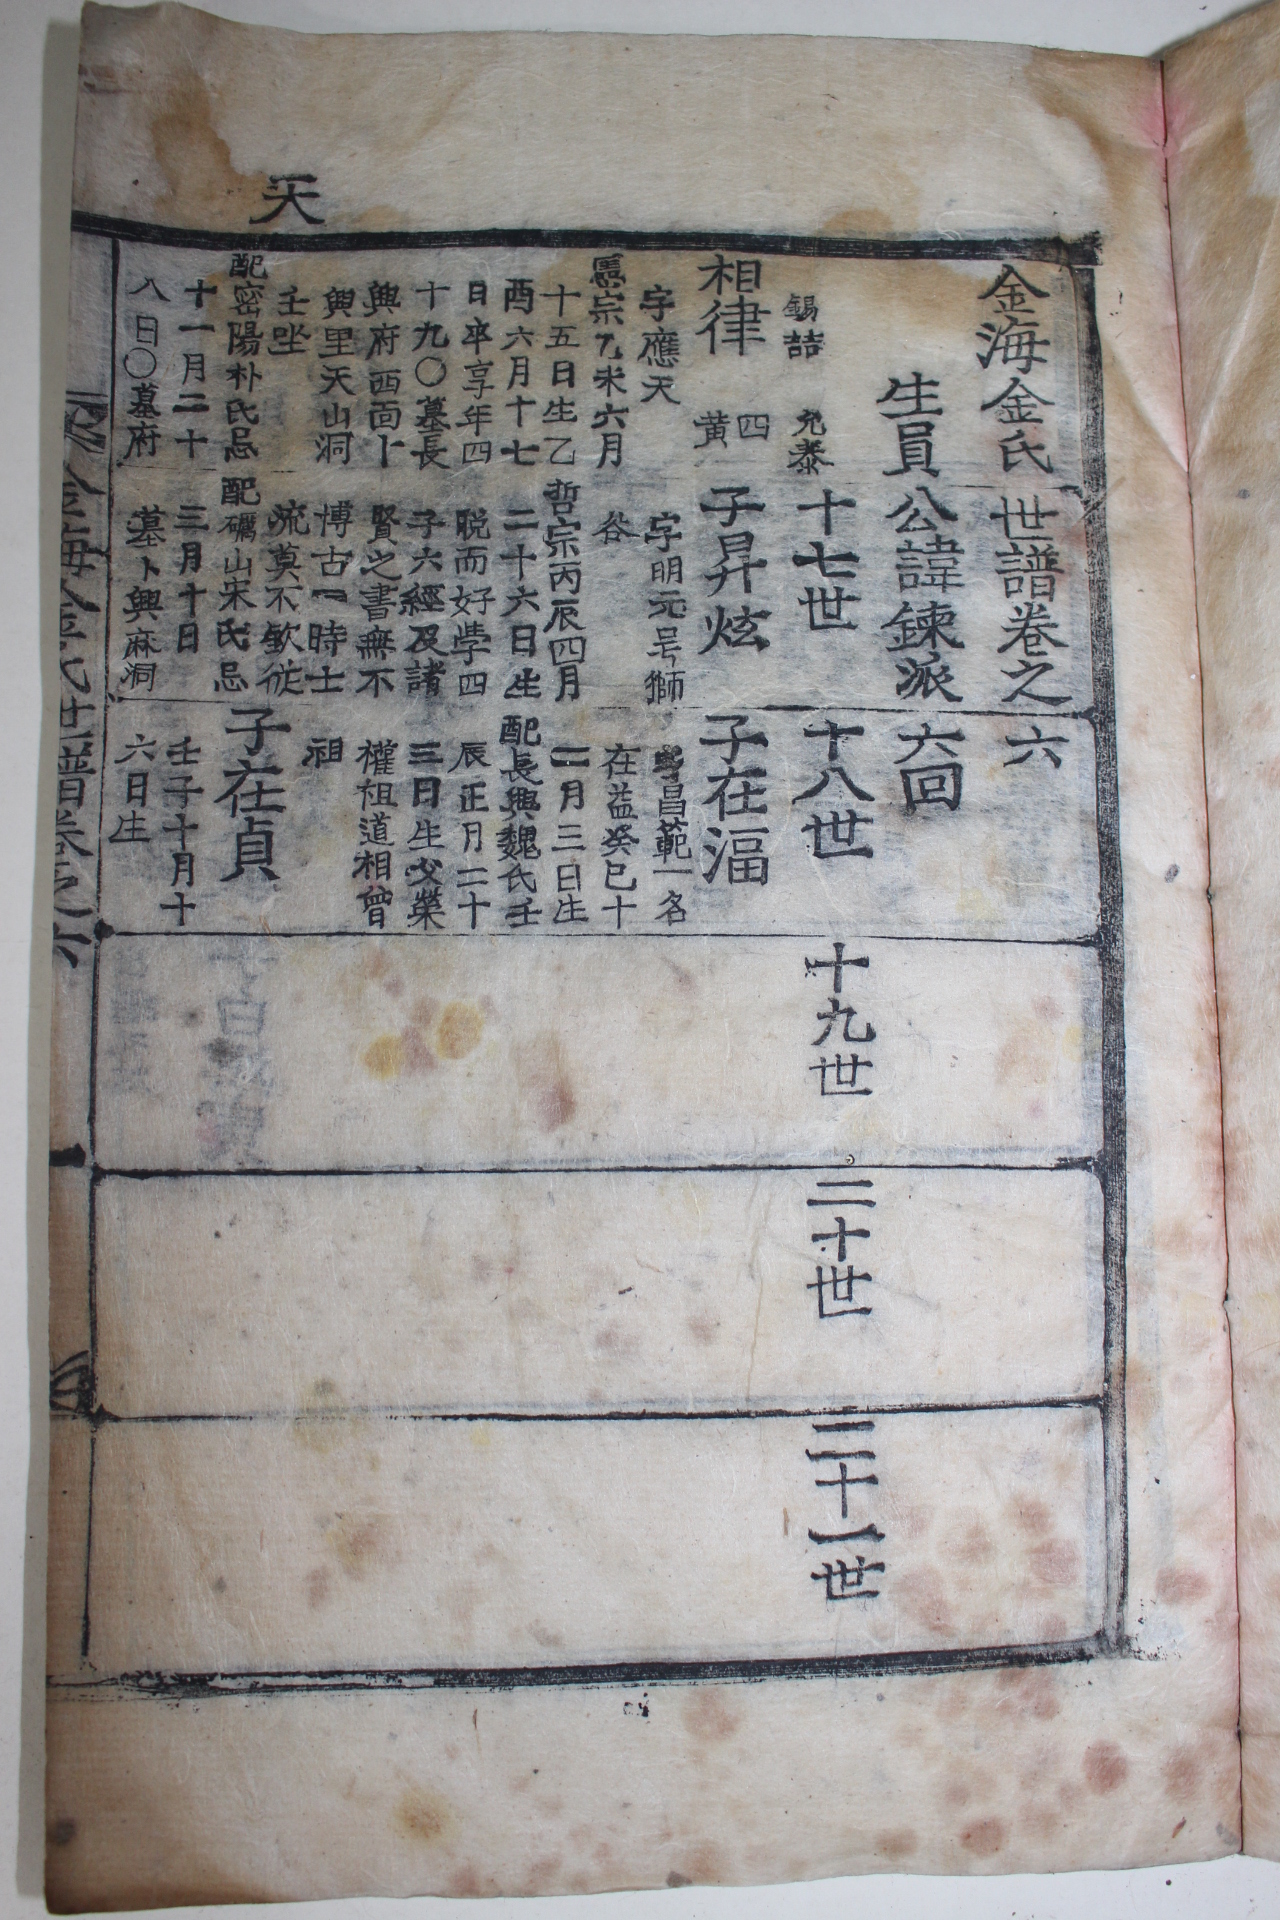 天
金海金氏世譜卷之六
生員公諱鍊派 六回
錫喆 允泰
十七世
十八世
十九世
二十世
二十一世
相律
四
黃
字應天
憲宗乙未六月
十五日生乙
酉六月十七
日卒享年四
十九〇墓長
興府西面卜
興里天山洞
壬坐
配密陽朴氏忌
十一月二十
八日〇墓府
子昇炫
字明元号獅
谷
哲宗丙辰四月
二十六日生
脱而好学四
子六經及諸
賢之書無不
博古一時士
流莫不欽從
配礪山宋氏忌
三月十日
墓卜興麻洞
子在湢
字昌範一名
在益癸巳十
二月三日生
配長興魏氏壬
辰正月二十
三日生父榮
權祖道相曾
祖
子在貞
壬子十月十
六日生
金海金氏世譜卷之六
一